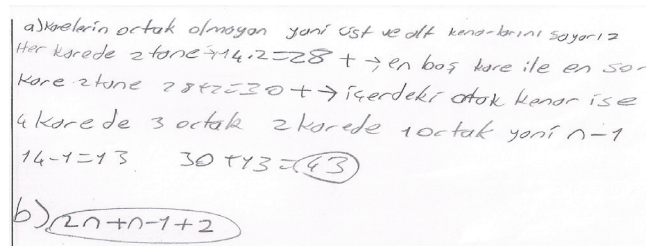 a) karelerin ortak olmayan yani üst ve alt kenarlarını sayarız
Her karede 2 tane → 14.2=28 + → en baş kare ile en son
kare 2 tane 28+2=30 + → içerdeki ortak kenar ise
4 karede 3 ortak 2 karede 1 ortak yani n-1
14-1=13 30+13=43
b) 2n+n-1+2